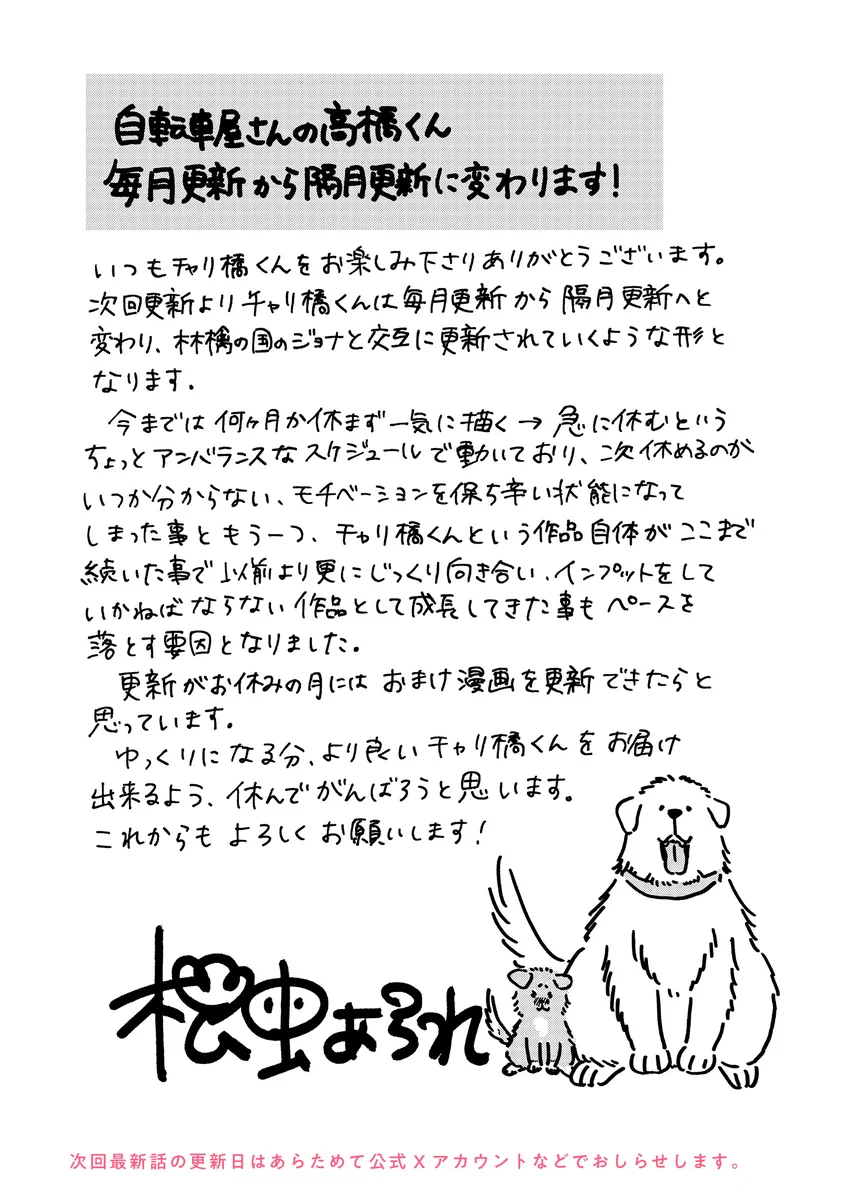 自転車屋さんの高橋くん
毎月更新から隔月更新に変わります!
いつもチャリ橋くんをお楽しみ下さりありがとうございます。
次回更新よりチャリ橋くんは毎月更新から隔月更新へと
変わり、林檎の国のジョナと交互に更新されていくような形と
なります。
今までは何ヶ月か休まず一気に描く→急に休むという
ちょっとアンバランスなスケジュールで動いており、次休めるのが
いつか分からない、モチベーションを保ち辛い状態になって
しまった事ともう一つ、チャリ橋くんという作品自体がここまで
続いた事で以前より更にじっくり向き合い、インプットをして
いかねばならない作品として成長してきた事もペースを
落とす要因となりました。
更新がお休みの月にはおまけ漫画を更新できたらと
思っています。
ゆっくりになる分、より良いチャリ橋くんをお届け
出来るよう、休んでがんばろうと思います。
これからもよろしくお願いします!
松虫あられ
次回最新話の更新日はあらためて公式Xアカウントなどでおしらせします。